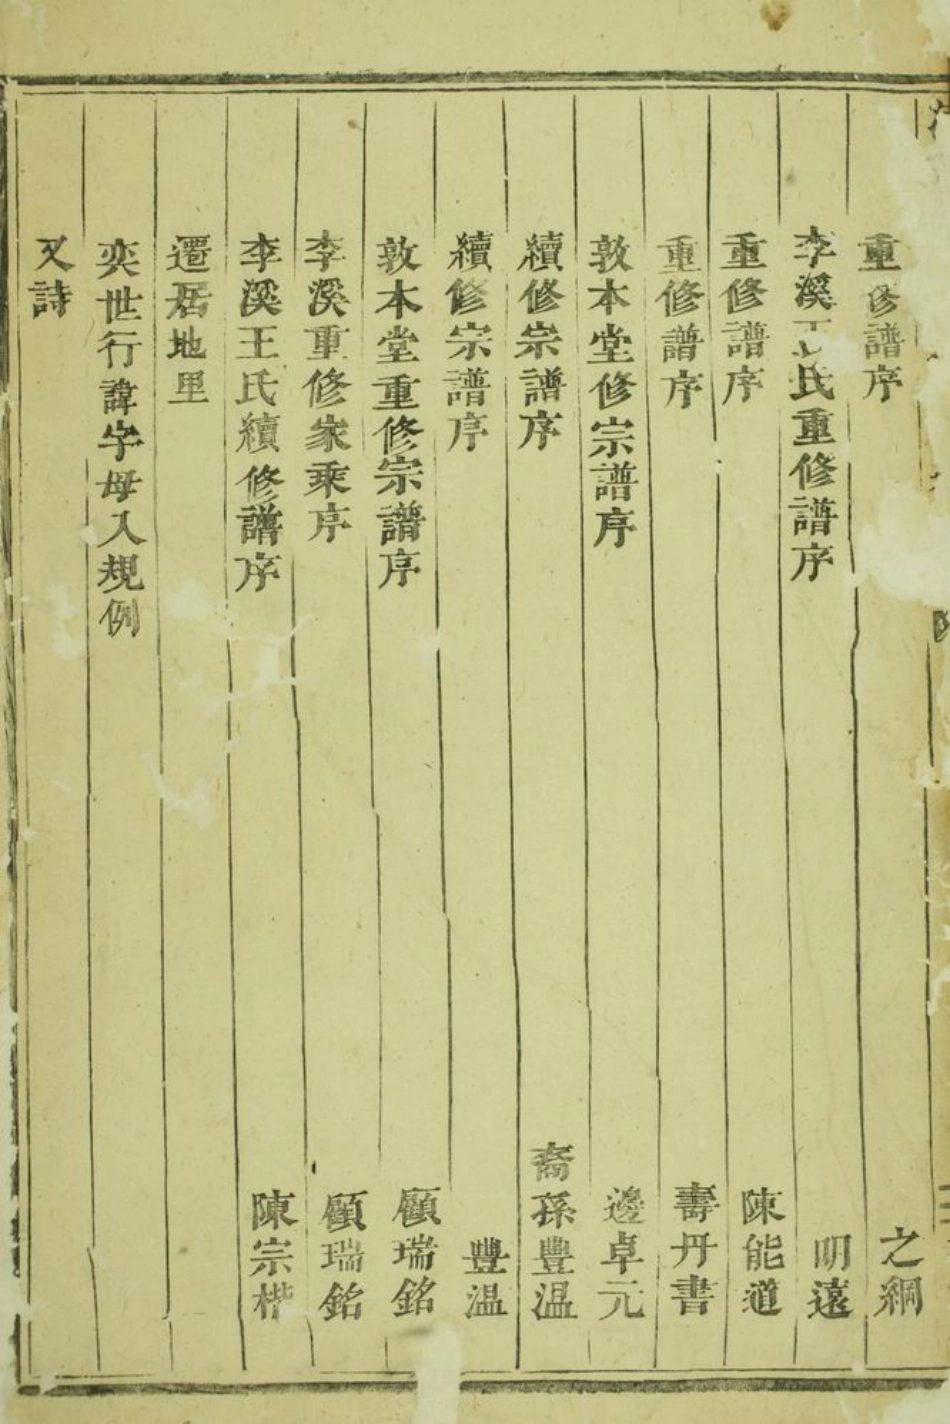 重修譜序 之綱
李溪王氏重修譜序 明遠
重修譜序 陳能道
重修譜序 壽丹書
敦本堂修宗譜序 邊卓元
續修宗譜序 裔孫豐溫
續修宗譜序 豐溫
敦本堂重修宗譜序 顧瑞銘
李溪重修家乘序 顧瑞銘
李溪王氏續修譜序 陳宗楷
遷居地里
奕世行諱字母入規例
又詩